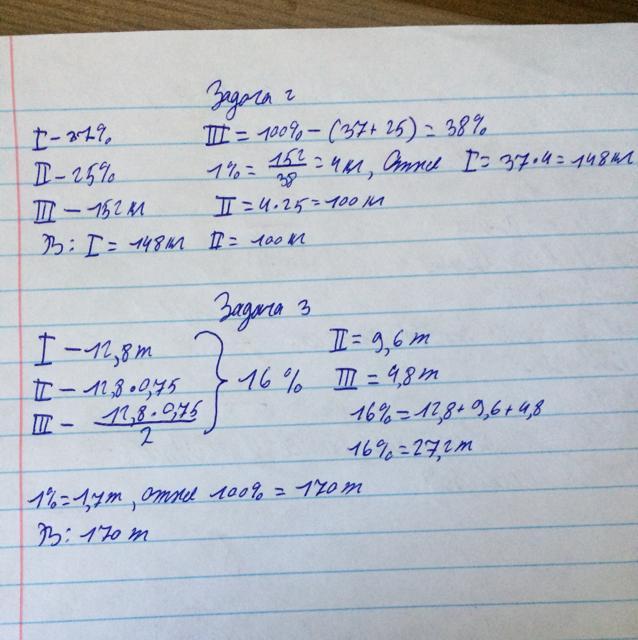 Задача 2
I - 37%
III = 100% - (37 + 25) = 38%
II - 25%
1% = 152/38 = 4 кг, отже I = 37 · 4 = 148 кг
III - 152 кг
II = 4 · 25 = 100 кг
В: I = 148 кг II = 100 кг
Задача 3
I - 12,8 т
II = 9,6 т
II - 12,8 · 0,75
} 16%
III = 4,8 т
III - 12,8 · 0,75 / 2
16% = 12,8 + 9,6 + 4,8
16% = 27,2 т
1% = 1,7 т, отже 100% = 170 т
В: 170 т